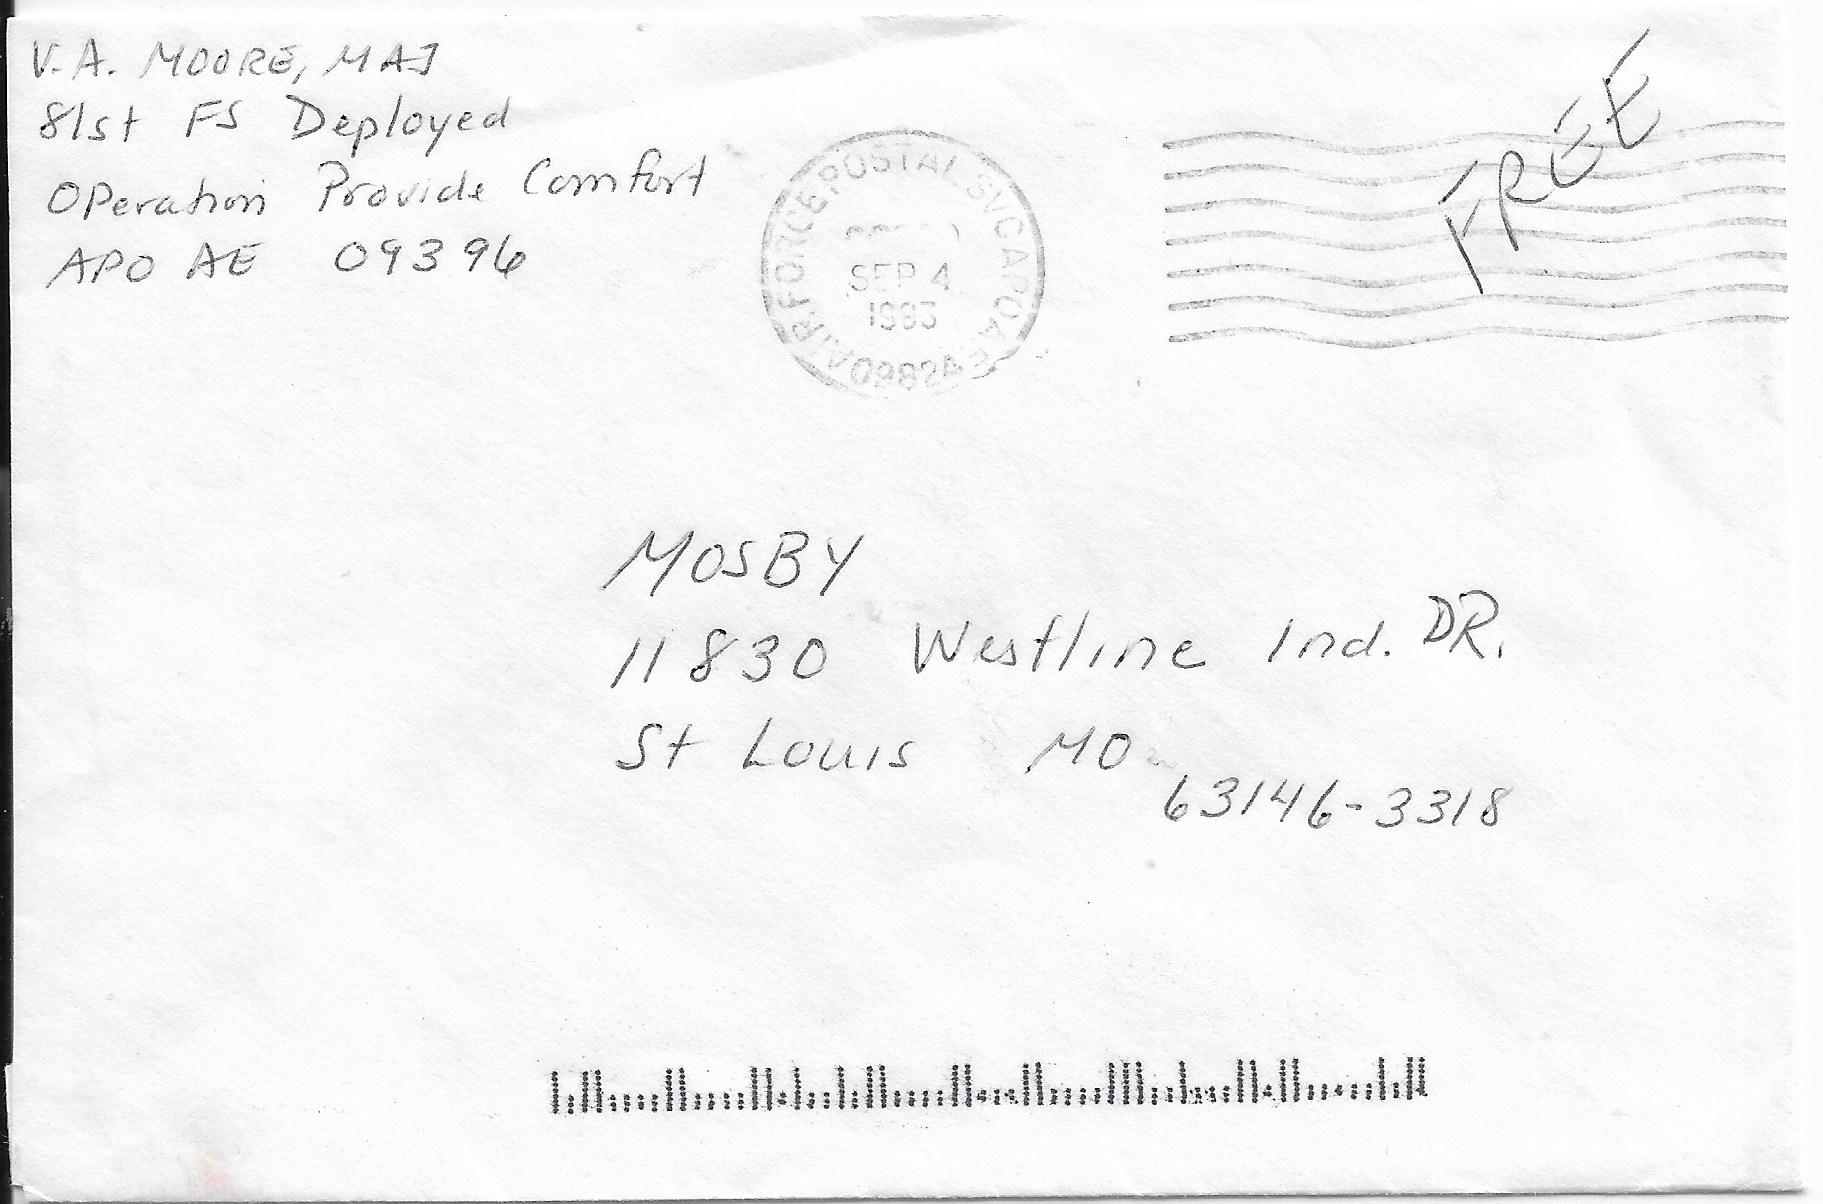 V.A. MOORE, MAJ
81st FS Deployed
Operation Provide Comfort
APO AE 09396
AIR FORCE POSTAL SVC APO AE
09824
SEP 4
1993
FREE
MOSBY
11830 Westline Ind. DR.
St Louis MO
63146-3318